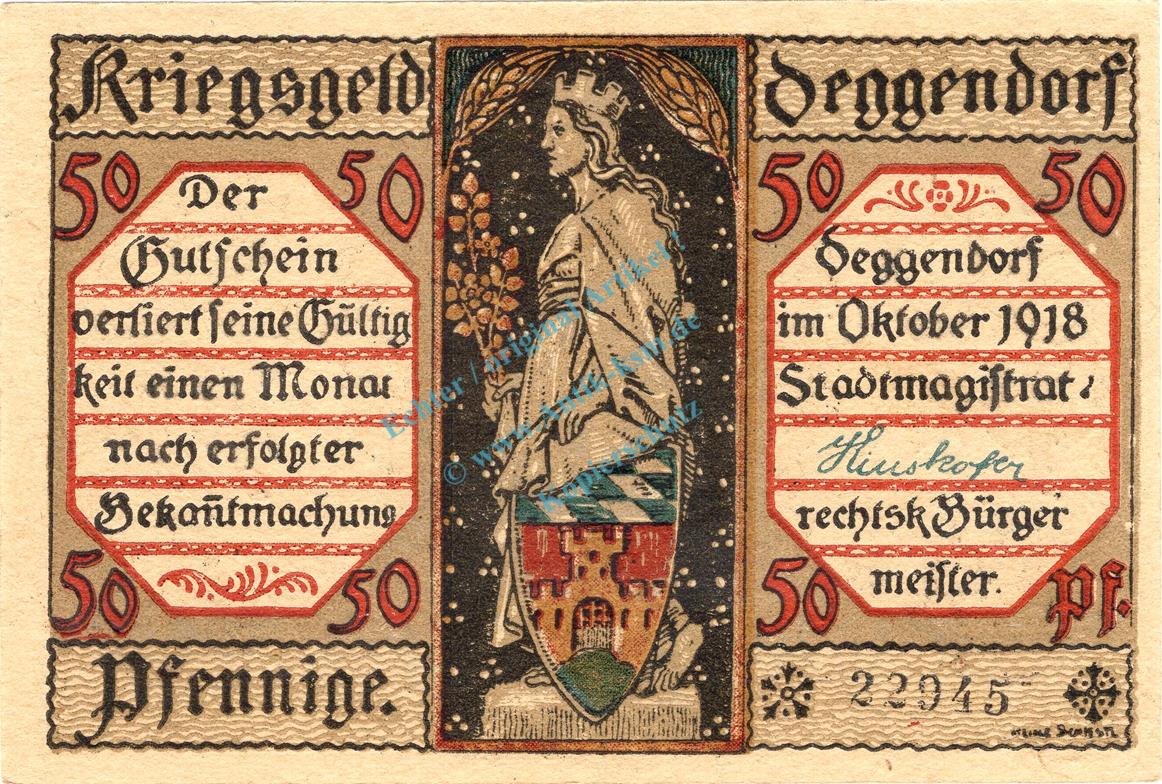 Kriegsgeld
Deggendorf
50 50
Der
Gutschein
verliert seine Gültig
keit einen Monat
nach erfolgter
Bekañtmachung
50 50
Pfennige.
50 50
Deggendorf
im Oktober 1918
Stadtmagistrat:
rechtsk Bürger
meister.
50 Pf.
22945
Echter / original Artikel!
© www.Antik-Ksw.de
Kopierschutz